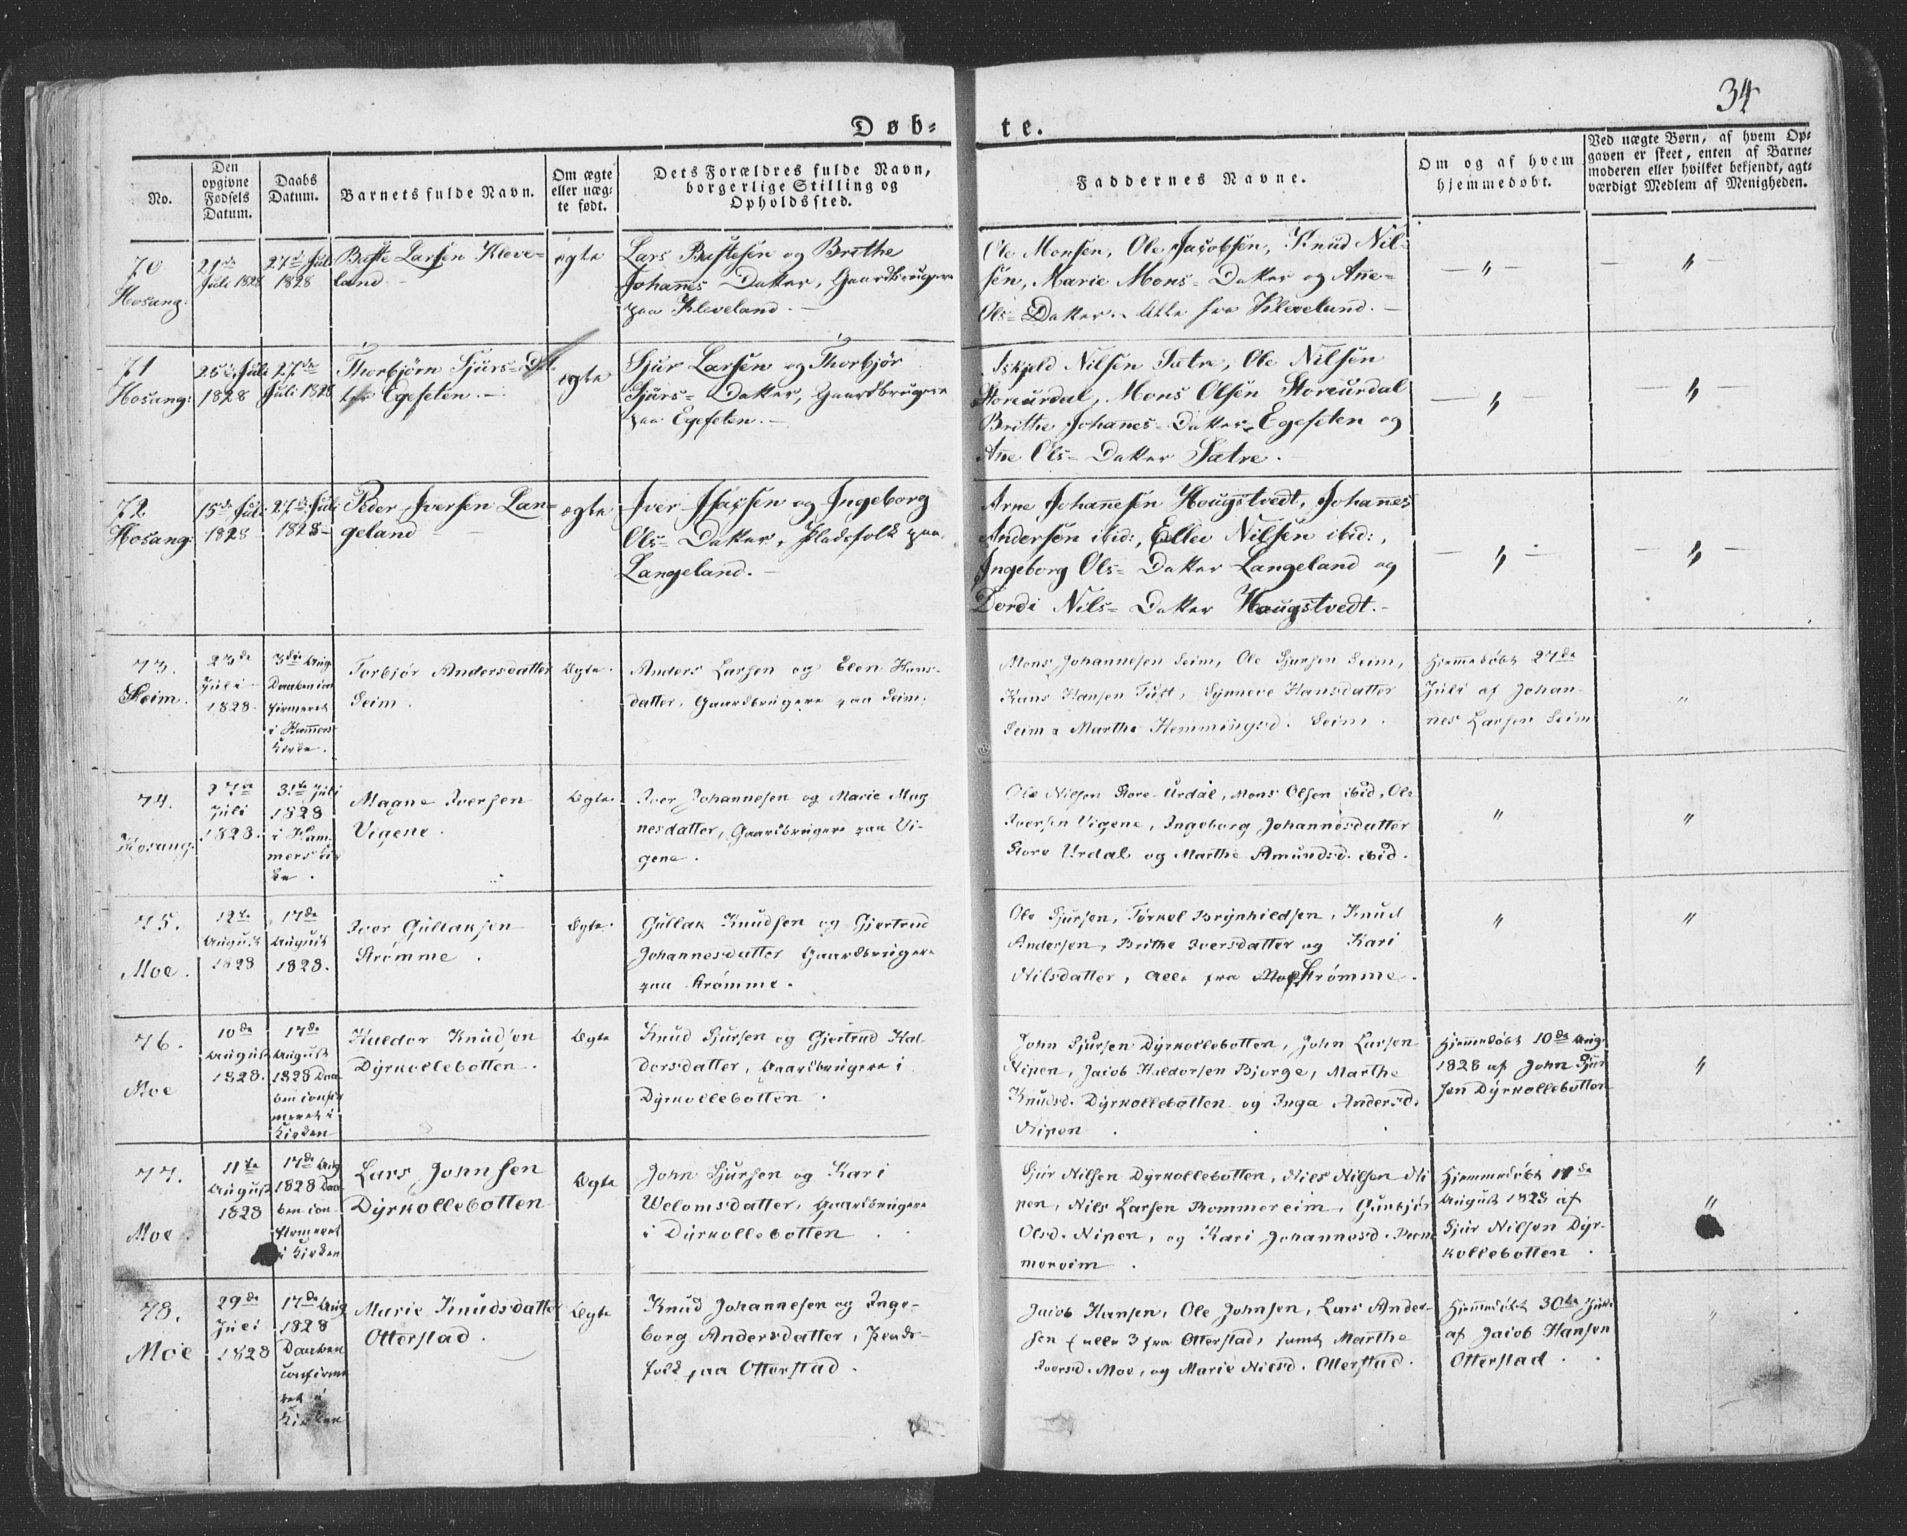 34
Døb-
te.
No.
Den
opgivne
Fødsels
Datum.
Daabs
Datum.
Barnets fulde Navn.
Om ægte
eller uæg-
te født.
Dets Forældres fulde Navn,
borgerlige Stilling og
Opholdssted.
Faddernes Navne.
Om og af hvem
hjemmedøbt.
Ved uægte Børn, af hvem Op-
gaven er skeet, enten af Barne-
moderen eller hvilket bekjendt, agt-
værdigt Medlem af Menigheden.
70
Hosang:
21de
Juli 1828
27de Juli
1828
Larsen Kleve-
land
ægte
Lars og Brithe
Johannes Datter, Gaardbrugere
paa Kleveland. -
Ole Monsen, Ole Jacobsen, Knud Nil-
sen, Marie Mons- Datter og Ane
Ols- Datter. alle fra Kleveland. -
— " —
— " —
71
Hosang:
25de Juli
1828
27de
Juli 1828
Thorbjørn Sjurs- Dat-
ter Egeseten. -
ægte
Sjur Larsen og Thorbjør
Sjurs- Datter, Gaardbrugere
paa Egeseten. -
Nilsen Sætre, Ole Nilsen
Storeurdal, Mons Olsen Storeurdal
Brithe Johanes- Datter Egeseten og
Ane Ols- Datter Sætre. -
— " —
— " —
72
Hosang:
15de Juli
1828
27de Juli
1828 -
Peder Iversen Lan-
geland
ægte
Iver og Ingeborg
Ols- Datter, Pladsfolk paa
Langeland. -
Arne Johannesen Hougstvedt, Johannes
Andersen ibid:, Ellev Nilsen ibid:,
Ingeborg Ols- Datter Langeland og
Dordi Nils- Datter Hougstvedt. -
— " —
— " —
73.
Seim.
23de
Juli
1828.
3die Aug.
Daaben con
firmeret
i Hammers
Kirke.
Torbjør Andersdatter
Seim.
Ægte.
Anders Larsen og Elen Hans-
datter, Gaardbrugere paa Seim.
Mons Johannesen Seim, Ole Sjursen Seim,
Hans Hansen Synneve Hansdatter
Seim & Marthe Hemmingsd. Seim.
Hjemmedøbt 27de
Juli af Johan-
nes Larsen Seim
"
74.
Hosang.
27de
Juli
1828.
Juli
1828
i Ham
mers Kir
ke.
Magne Iversen
Vigene.
Ægte.
Iver Johannesen og Marie Mag
nesdatter, Gaardbrugere paa Vi-
gene.
Ole Nilsen Store-Urdal, Mons Olsen ibid, Ole
Iversen Vigene, Ingeborg Johannesdatter
Store Urdal og Marthe Amundsd. ibid.
"
"
75.
Moe.
12te
August
1828
17de
August
1828.
Iver Gullaksen
Strømme.
Ægte.
Gullak Knudsen og Gjertrud
Johannesdatter Gaardbrugere
paa Strømme.
Ole Sjursen, Torkel Brynhildsen, Knud
Andersen, Brithe Iversdatter og Kari
Nilsdatter, alle fra Strømme.
"
"
76.
Moe
10de
August
1828.
17de
August
1828 Daa
ben confir
meret i
Kirken
Haldor Knudsen
Dyrkollebotten.
Ægte
Knud Sjursen og Gjertrud Hal-
dorsdatter, Gaardbrugere i
Dyrkollebotten.
John Sjursen Dyrkollebotten, John Larsen
Nipen, Jacob Haldorsen Bjorge, Marthe
Knudsd. Dyrkollebotten og Inga Andersd.
Nipen
Hjemmedøbt 10de Aug.
1828 af John Sjur
sen Dyrkollebotten
"
77.
Moe.
11te
August
1828
17de Aug
1828 Daa
ben con
firmeret
i Kirken
Lars Johnsen
Dyrkollebotten
Ægte
John Sjursen og Kari
Welomsdatter, Gaardbrugere
i Dyrkollebotten
Sjur Nilsen Dyrkollebotten, Nils Nilsen Ni
pen, Nils Larsen Rommereim, Gunbjør
Olsd. Nipen, og Kari Johannesd. Rom
mereim.
Hjemmedøbt 11de
August 1828 af
Sjur Nilsen Dyr-
kollebotten.
"
78.
Moe
29de
Juli
1828
17de Aug
1828
Daaben
confirme
ret i
Kirken
Marie Knudsdatter
Otterstad.
Ægte
Knud Johannesen og Inge-
borg Andersdatter, Plads-
folk paa Otterstad.
Jacob Hansen, Ole Johnsen, Lars Ander-
sen (alle 3 fra Otterstad, samt Marthe
Iversd. Moe, og Marie Nilsd. Otterstad.
Hjemmedøbt 30te Juli
af Jacob Hansen
Otterstad.
"